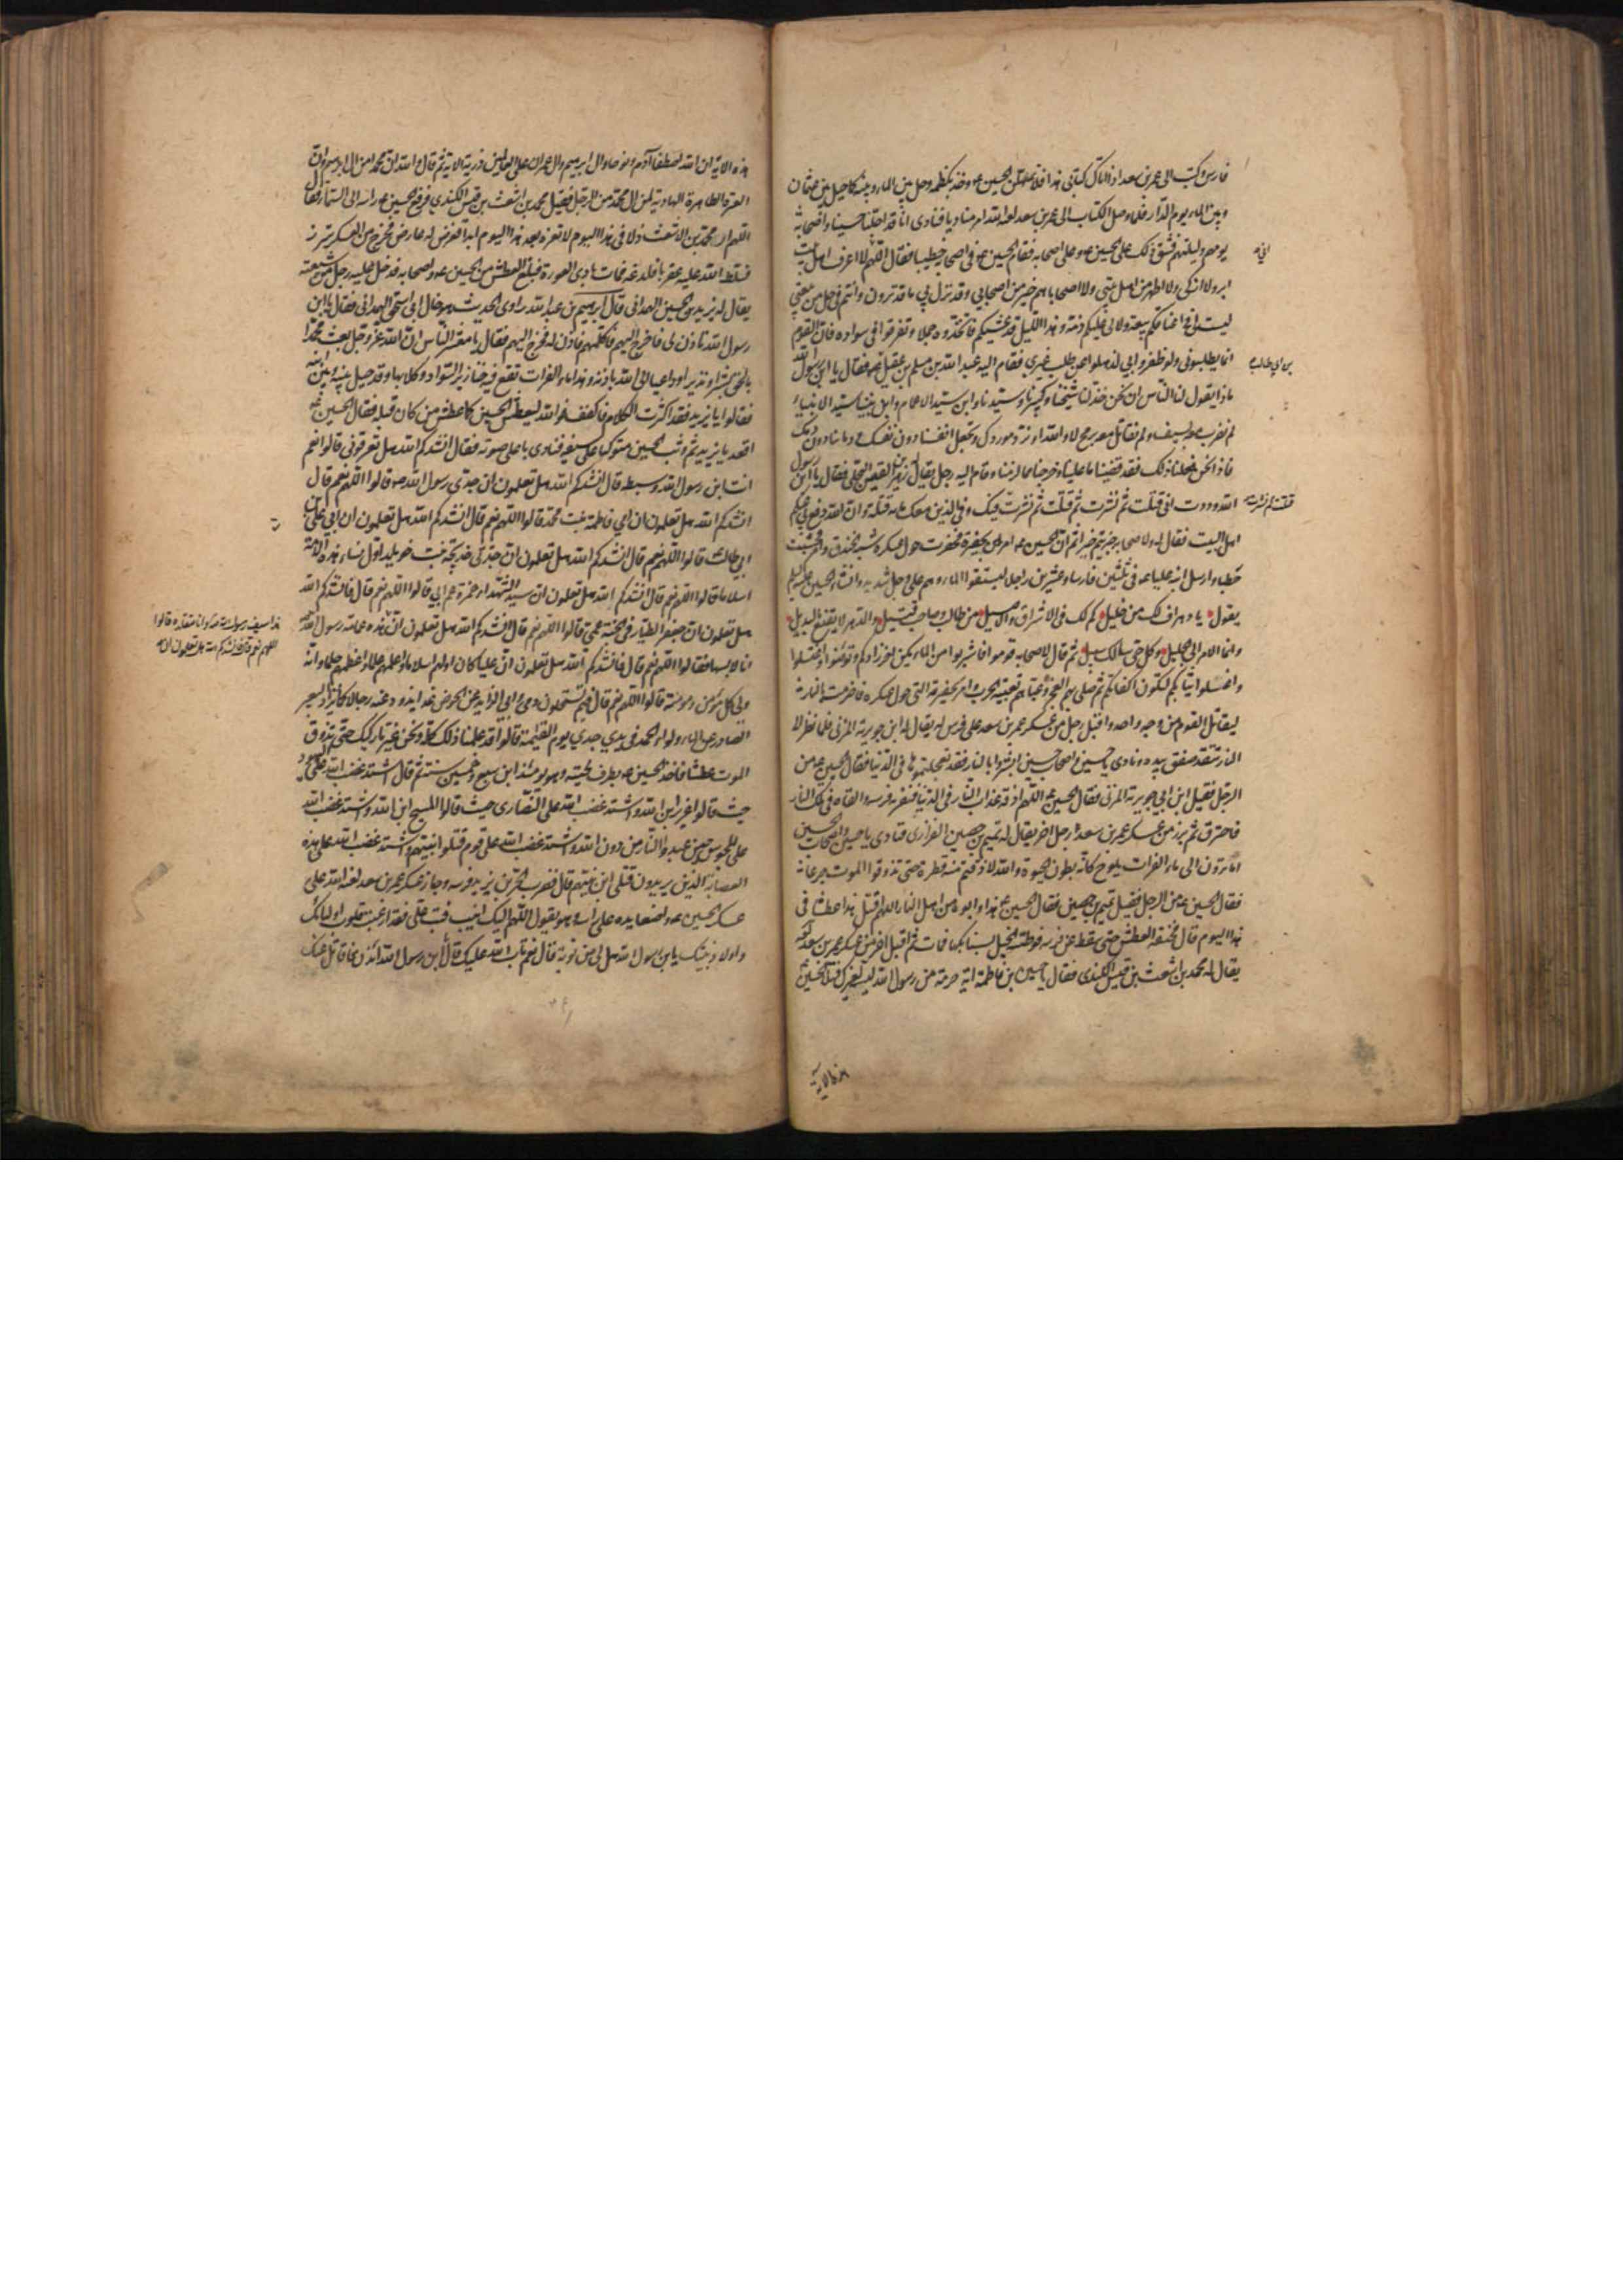 فارس وكتب الى عمر بن سعد اذا اتاك كتابى هذا فلا تمهلن الحسين ع وخذ بكظمه وحل بين الماء وبينه كما حيل بين عثمان
وبين الماء يوم الدار فلما وصل الكتاب الى عمر بن سعد لعنه الله امر مناديا فنادى انا قد اجلنا حسينا واصحابه
يومهم وليلتهم فشق ذلك على الحسين ع وعلى اصحابه فقام الحسين ع فى اصحابه خطيبا فقال اللهم لا اعرف اهل بيت
ابر ولا ازكى ولا اطهر من اهل بيتى ولا اصحابا هم خير من اصحابى وقد نزل بى ما قد ترون وانتم فى حل من بيعتى
ليست لى فى اعناقكم بيعة ولا لى عليكم ذمة وهذا الليل قد غشيكم فاتخذوه جملا وتفرقوا فى سواده فان القوم
انما يطلبونى ولو ظفروا بى لذهلوا عن طلب غيرى فقام اليه عبد الله بن مسلم بن عقيل فقال يا ابن رسول الله
بن ابى طالب
ماذا يقول لنا الناس ان نحن خذلنا شيخنا وكبيرنا وسيدنا وابن سيد الاعمام وابن نبينا سيد الانبياء
لم نضرب معه بسيف ولم نقاتل معه برمح لا والله او نرد موردك ونجعل انفسنا دون نفسك ودماءنا دون دمك
فاذا نحن فعلنا ذلك فقد قضينا ما علينا وخرجنا مما لزمنا وقام اليه رجل يقال له زهير بن القين البجلى فقال يا ابن رسول
الله وددت انى قتلت ثم نشرت ثم قتلت ثم نشرت فيك وفى الذين معك مائة قتلة وان الله دفع بى عنكم
قتلت ثم نشرت
اهل البيت فقال له ولاصحابه جزيتم خيرا ثم ان الحسين ع امر بحفيرة فحفرت حول عسكره شبه الخندق وامر فحشيت
حطبا وارسل ابنه عليا ع فى ثلثين فارسا وعشرين راجلا ليستقوا الماء وهم على وجل شديد وانشاء الحسين ع
يقول يا دهر اف لك من خليل كم لك فى الاشراق والاصيل من طالب وصاحب قتيل والدهر لا يقنع بالبديل
وانما الامر الى الجليل وكل حى سالك سبيل ثم قال لاصحابه قوموا فاشربوا من الماء يكن اخر زادكم وتوضئوا واغتسلوا
واغسلوا ثيابكم لتكون اكفانكم ثم صلى بهم الفجر وعباهم تعبية الحرب وامر بحفيرته التى حول عسكره فاضرمت بالنار
ليقاتل القوم من وجه واحد واقبل رجل من عسكر عمر بن سعد على فرس له يقال له ابن ابى جويرية المزنى فلما نظر الى
النار تتقد صفق بيده ونادى يا حسين واصحاب حسين ابشروا بالنار فقد تعجلتموها فى الدنيا فقال الحسين ع من
الرجل فقيل ابن ابى جويرية المزنى فقال الحسين ع اللهم اذقه عذاب النار فى الدنيا فنفر به فرسه والقاه فى تلك النار
فاحترق ثم برز من عسكر عمر بن سعد رجل اخر يقال له تميم بن حصين الفزارى فنادى يا حسين ويا اصحاب الحسين
اما ترون الى ماء الفرات يلوح كانه بطون الحيوة والله لا ذقتم منه قطرة حتى تذوقوا الموت جرعا
فقال الحسين ع من الرجل فقيل تميم بن حصين فقال الحسين ع هذا وابوه من اهل النار اللهم اقتل هذا عطشا فى
هذا اليوم قال فخنقه العطش حتى سقط عن فرسه فوطئته الخيل بسنابكها فمات ثم اقبل اخر من عسكر عمر بن سعد
يقال له محمد بن اشعث بن قيس الكندى فقال يا حسين بن فاطمة اية حرمة من رسول الله ليست لغيرك فتلا الحسين
هذه الاية
هذه الاية ان الله اصطفى آدم ونوحا وال ابرهيم وال عمران على العالمين ذرية الاية ثم قال والله ان محمدا لمن ال ابرهيم وان
العترة الهادية لمن ال محمد من الرجل فقيل محمد بن اشعث بن قيس الكندى فرفع الحسين ع راسه الى السماء فقال
اللهم ار محمد بن الاشعث ذلا فى هذا اليوم لا تعزه بعد هذا اليوم ابدا فعرض له عارض فخرج من العسكر يتبرز
فسلط الله عليه عقربا فلدغه فمات بادى العورة فبلغ العطش من الحسين ع واصحابه فدخل عليه رجل من شيعته
يقال له يزيد بن الحصين الهمدانى قال ابرهيم بن عبد الله راوى الحديث هو خال ابى اسحق الهمدانى فقال يا ابن
رسول الله تاذن لى فاخرج اليهم فاكلمهم فاذن له فخرج اليهم فقال يا معشر الناس ان الله عز وجل بعث محمدا
بالحق بشيرا ونذيرا وداعيا الى الله باذنه وهذا ماء الفرات تقع فيه خنازير السواد وكلابها وقد حيل بينه وبين ابنه
فقالوا يا يزيد فقد اكثرت الكلام فاكفف فوالله ليعطش الحسين كما عطش من كان قبله فقال الحسين ع
اقعد يا يزيد ثم وثب الحسين متوكيا على سيفه فنادى باعلى صوته فقال انشدكم الله هل تعرفونى قالوا نعم
انت ابن رسول الله وسبطه قال انشدكم الله هل تعلمون ان جدى رسول الله ص قالوا اللهم نعم قال
انشدكم الله هل تعلمون ان امى فاطمة بنت محمد قالوا اللهم نعم قال انشدكم الله هل تعلمون ان ابى على بن
ابى طالب قالوا اللهم نعم قال انشدكم الله هل تعلمون ان جدتى خديجة بنت خويلد اول نساء هذه الامة
اسلاما قالوا اللهم نعم قال انشدكم الله هل تعلمون ان سيد الشهداء حمزة عم ابى قالوا اللهم نعم قال فانشدكم الله
هل تعلمون ان جعفر الطيار فى الجنة عمى قالوا اللهم نعم قال فانشدكم الله هل تعلمون ان هذه عمامة رسول الله
هذا سيف رسول الله ص وانا متقلده قالوا
اللهم نعم قال فانشدكم الله هل تعلمون ان هذه
انا لابسها فقالوا اللهم نعم قال فانشدكم الله هل تعلمون ان عليا كان اولهم اسلاما واعلمهم علما واعظمهم حلما وانه
ولى كل مؤمن ومؤمنة قالوا اللهم نعم قال فبم تستحلون دمى وابى الذائد عن الحوض غدا يذود عنه رجالا كما يذاد البعير
الصادر عن الماء ولواء الحمد فى يدى جدى يوم القيمة قالوا قد علمنا ذلك كله ونحن غير تاركيك حتى تذوق
الموت عطشا فاخذ الحسين ع بطرف لحيته وهو يومئذ ابن سبع وخمسين سنة ثم قال اشتد غضب الله على اليهود
حيث قالوا عزير ابن الله واشتد غضب الله على النصارى حيث قالوا المسيح ابن الله واشتد غضب الله
على المجوس حين عبدوا النار من دون الله واشتد غضب الله على قوم قتلوا نبيهم واشتد غضب الله على هذه
العصابة الذين يريدون قتلى ابن نبيهم قال فضرب الحر بن يزيد فرسه وجاز عسكر عمر بن سعد لعنه الله الى
عسكر الحسين ع واضعا يده على راسه وهو يقول اللهم اليك انيب فتب على فقد ارعبت قلوب اوليائك
واولاد نبيك يا ابن رسول الله هل لى من توبة قال نعم تاب الله عليك قال يا ابن رسول الله ائذن لى فاقاتل عنك